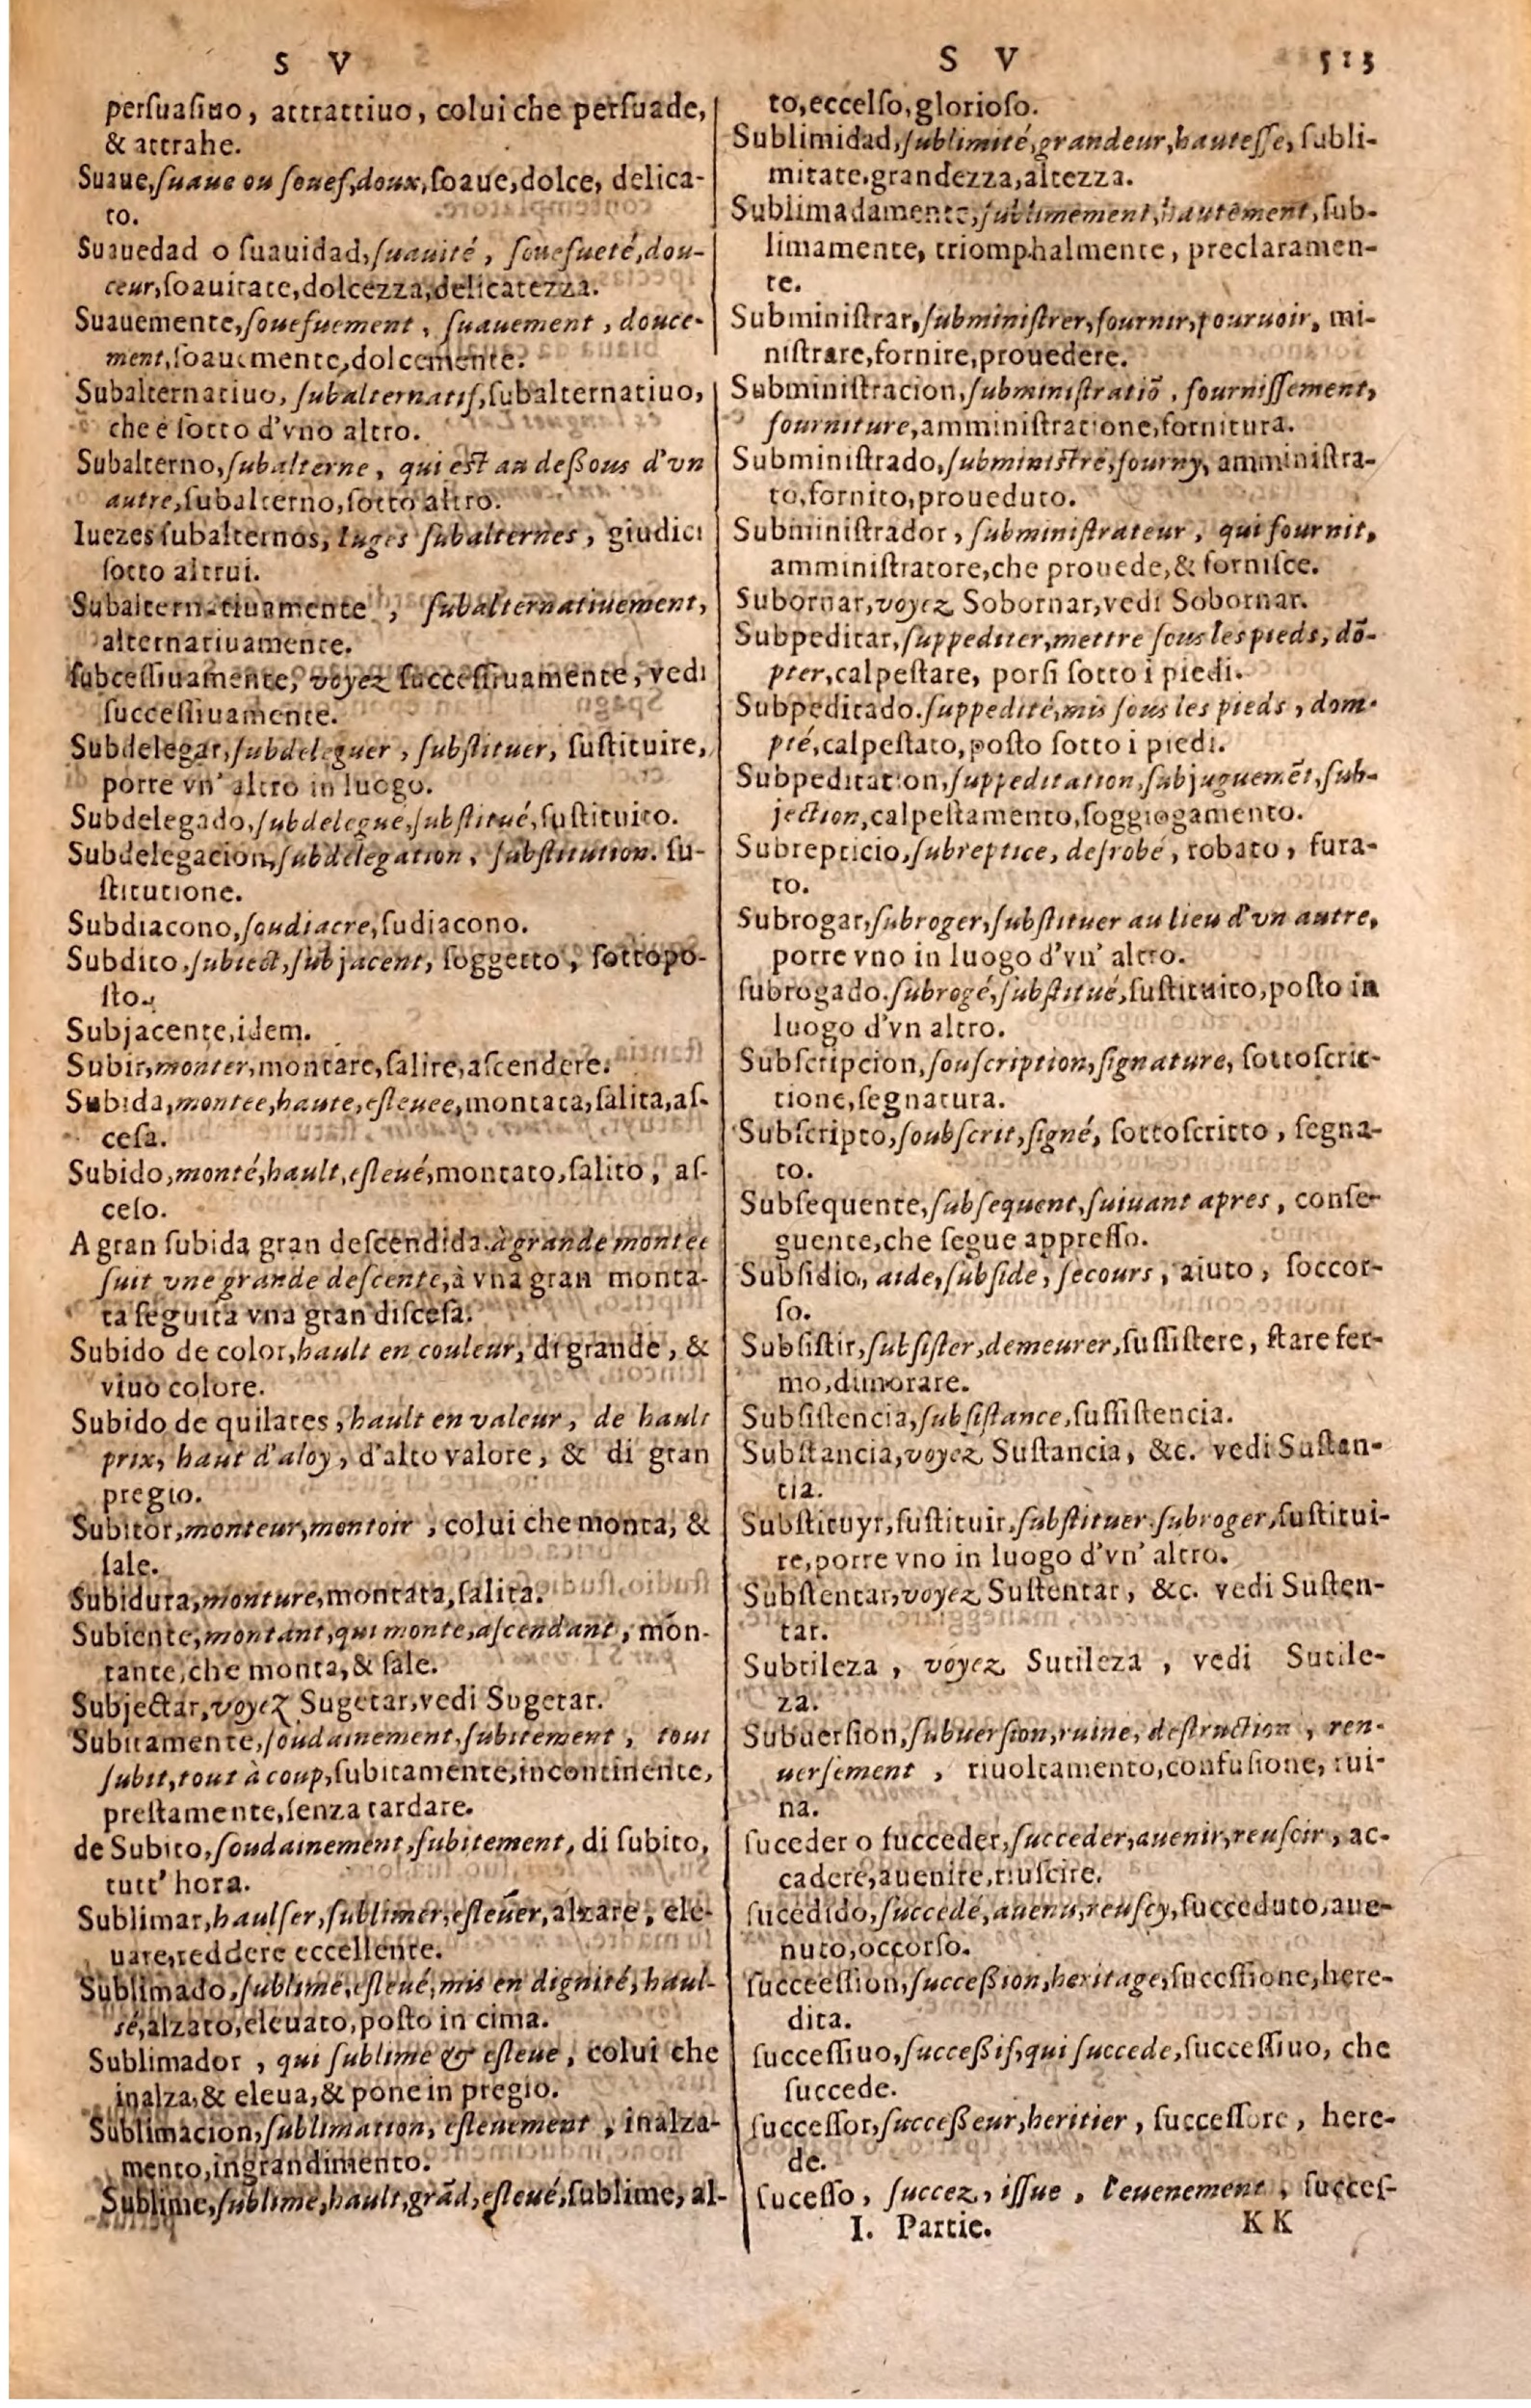 S V
perſuaſiuo, attrattiuo, colui che perſuade,
& attrahe.
Suaue, ſuaue ou ſouef, doux, ſoaue, dolce, delica-
to.
Suauedad o ſuauidad, ſuauité, ſouefueté, dou-
ceur, ſoauitate, dolcezza, delicatezza.
Suauemente, ſouefuement, ſuauement, douce-
ment, ſoauemente, dolcemente.
Subalternatiuo, ſubalternatif, ſubalternatiuo,
che è ſotto d'vno altro.
Subalterno, ſubalterne, qui est au deßous d'vn
autre, ſubalterno, ſotto altro.
Iuezes ſubalternos, Iuges ſubalternes, giudici
ſotto altrui.
Subalternatiuamente, ſubalternatiuement,
alternatiuamente.
ſubceſſiuamente, voyez ſucceſſiuamente, vedi
ſucceſſiuamente.
Subdelegar, ſubdeleguer, ſubſtituer, ſuſtituire,
porre vn' altro in luogo.
Subdelegado, ſubdelegué, ſubſtitué, ſuſtituito.
Subdelegacion, ſubdelegation, ſubſtitution. ſu-
ſtitutione.
Subdiacono, ſoudiacre, ſudiacono.
Subdito, ſubiect, ſubjacent, ſoggetto, ſottopo-
ſto.
Subjacente, idem.
Subir, monter, montare, ſalire, aſcendere.
Subida, montee, haute, eſleuee, montata, ſalita, aſ-
ceſa.
Subido, monté, hault, eſleué, montato, ſalito, aſ-
ceſo.
A gran ſubida gran deſcendida. à grande montee
ſuit vne grande deſcente, à vna gran monta-
ta ſeguita vna gran diſceſa.
Subido de color, hault en couleur, di grande, &
viuo colore.
Subido de quilates, hault en valeur, de hault
prix, haut d'aloy, d'alto valore, & di gran
pregio.
Subitor, monteur, montoir, colui che monta, &
ſale.
Subidura, monture, montata, ſalita.
Subiente, montant, qui monte, aſcendant, mon-
tante, che monta, & ſale.
Subjectar, voyez Sugetar, vedi Sugetar.
Subitamente, ſoudainement, ſubitement, tout
ſubit, tout à coup, ſubitamente, incontinente,
preſtamente, ſenza tardare.
de Subito, ſoudainement, ſubitement, di ſubito,
tutt' hora.
Sublimar, haulſer, ſublimer, eſleuer, alzare, ele-
uare, reddere eccellente.
Sublimado, ſublimé, eſleué, mis en dignité, haul-
ſé, alzato, eleuato, poſto in cima.
Sublimador, qui ſublime & eſleue, colui che
inalza, & eleua, & pone in pregio.
Sublimacion, ſublimation, eſleuement, inalza-
mento, ingrandimento.
Sublime, ſublime, hault, grãd, eſleué, ſublime, al-
S V 513
to, eccelſo, glorioſo.
Sublimidad, ſublimité, grandeur, hauteſſe, ſubli-
mitate, grandezza, altezza.
Sublimadamente, ſublimement, hautement, ſub-
limamente, triomphalmente, preclaramen-
te.
Subminiſtrar, ſubminiſtrer, fournir, pouruoir, mi-
niſtrare, fornire, prouedere.
Subminiſtracion, ſubminiſtratiõ, fourniſſement,
fourniture, amminiſtratione, fornitura.
Subminiſtrado, ſubminiſtré, fourny, amminiſtra-
to, fornito, proueduto.
Subminiſtrador, ſubminiſtrateur, qui fournit,
amminiſtratore, che prouede, & forniſce.
Subornar, voyez Sobornar, vedi Sobornar.
Subpeditar, ſuppediter, mettre ſous les pieds, dõ-
pter, calpeſtare, porſi ſotto i piedi.
Subpeditado. ſuppedité, mis ſous les pieds, dom-
pté, calpeſtato, poſto ſotto i piedi.
Subpeditacion, ſuppeditation, ſubjuguemẽt, ſub-
jection, calpeſtamento, ſoggiogamento.
Subrepticio, ſubreptice, deſrobé, robato, fura-
to.
Subrogar, ſubroger, ſubſtituer au lieu d'vn autre,
porre vno in luogo d'vn' altro.
ſubrogado. ſubrogé, ſubſtitué, ſuſtituito, poſto in
luogo d'vn altro.
Subſcripcion, ſouſcription, ſignature, ſottoſcrit-
tione, ſegnatura.
Subſcripto, ſoubſcrit, ſigné, ſottoſcritto, ſegna-
to.
Subſequente, ſubſequent, ſuiuant apres, conſe-
guente, che ſegue appreſſo.
Subſidio, aide, ſubſide, ſecours, aiuto, ſoccor-
ſo.
Subſiſtir, ſubſiſter, demeurer, ſuſſiſtere, ſtare fer-
mo, dimorare.
Subſiſtencia, ſubſiſtance, ſuſſiſtencia.
Subſtancia, voyez Suſtancia, &c. vedi Suſtan-
tia.
Subſtituyr, ſuſtituir, ſubſtituer. ſubroger, ſuſtitui-
re, porre vno in luogo d'vn' altro.
Subſtentar, voyez Suſtentar, &c. vedi Suſten-
tar.
Subtileza, voyez Sutileza, vedi Sutile-
za.
Subuerſion, ſubuerſion, ruine, deſtruction, ren-
uerſement, riuoltamento, confuſione, rui-
na.
ſuceder o ſucceder, ſucceder, auenir, reuſcir, ac-
cadere, auenire, riuſcire.
ſucedido, ſuccedé, auenu, reuſcy, ſucceduto, aue-
nuto, occorſo.
ſucceeſſion, ſucceßion, heritage, ſuceſſione, here-
dita.
ſucceſſiuo, ſucceßif, qui ſuccede, ſucceſſiuo, che
ſuccede.
ſucceſſor, ſucceßeur, heritier, ſucceſſore, here-
de.
ſuceſſo, ſuccez, iſſue, l'euenement, ſucceſ-
I. Partie. K K